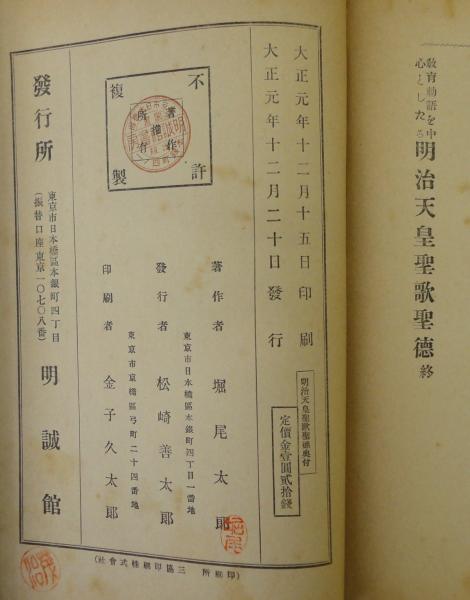 教育勅語を中
心としたる
明治天皇聖歌聖德 終
明治天皇聖歌聖德奥付
定價金壹圓貳拾錢
大正元年十二月十五日印刷
大正元年十二月二十日發行
不許
複製
著作
所有
著作者 堀尾太郎
東京市日本橋區本銀町四丁目一番地
發行者 松崎善太郎
東京市京橋區弓町二十四番地
印刷者 金子久太郎
發行所
東京市日本橋區本銀町四丁目
(振替口座東京一〇七〇八番)
明誠館
(印刷所 三協印刷株式會社)
堀尾